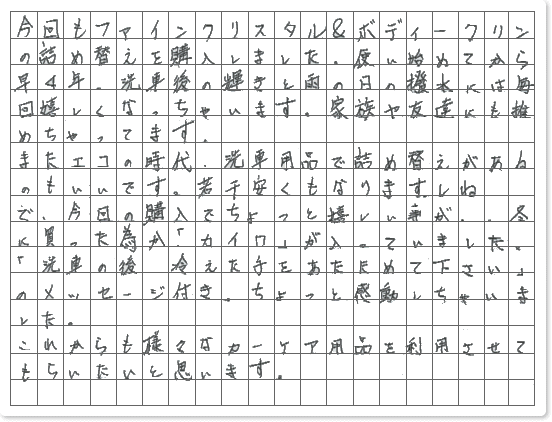 今回もファインクリスタル＆ボディークリン
の詰め替えを購入しました。使い始めてから
早4年。洗車後の輝きと雨の日の撥水には毎
回嬉しくなっちゃいます。家族や友達にも推
めちゃってます。
またエコの時代．洗車用品で詰め替えがある
のもいいです。若干安くもなりますしね
で、今回の購入でちょっと嬉しい事が．．冬
に買った為か「カイロ」が入っていました。
「洗車の後、冷えた手をあたためて下さい。」
のメッセージ付き。ちょっと感動しちゃいま
した。
これからも様々なカーケア用品を利用させて
もらいたいと思います。